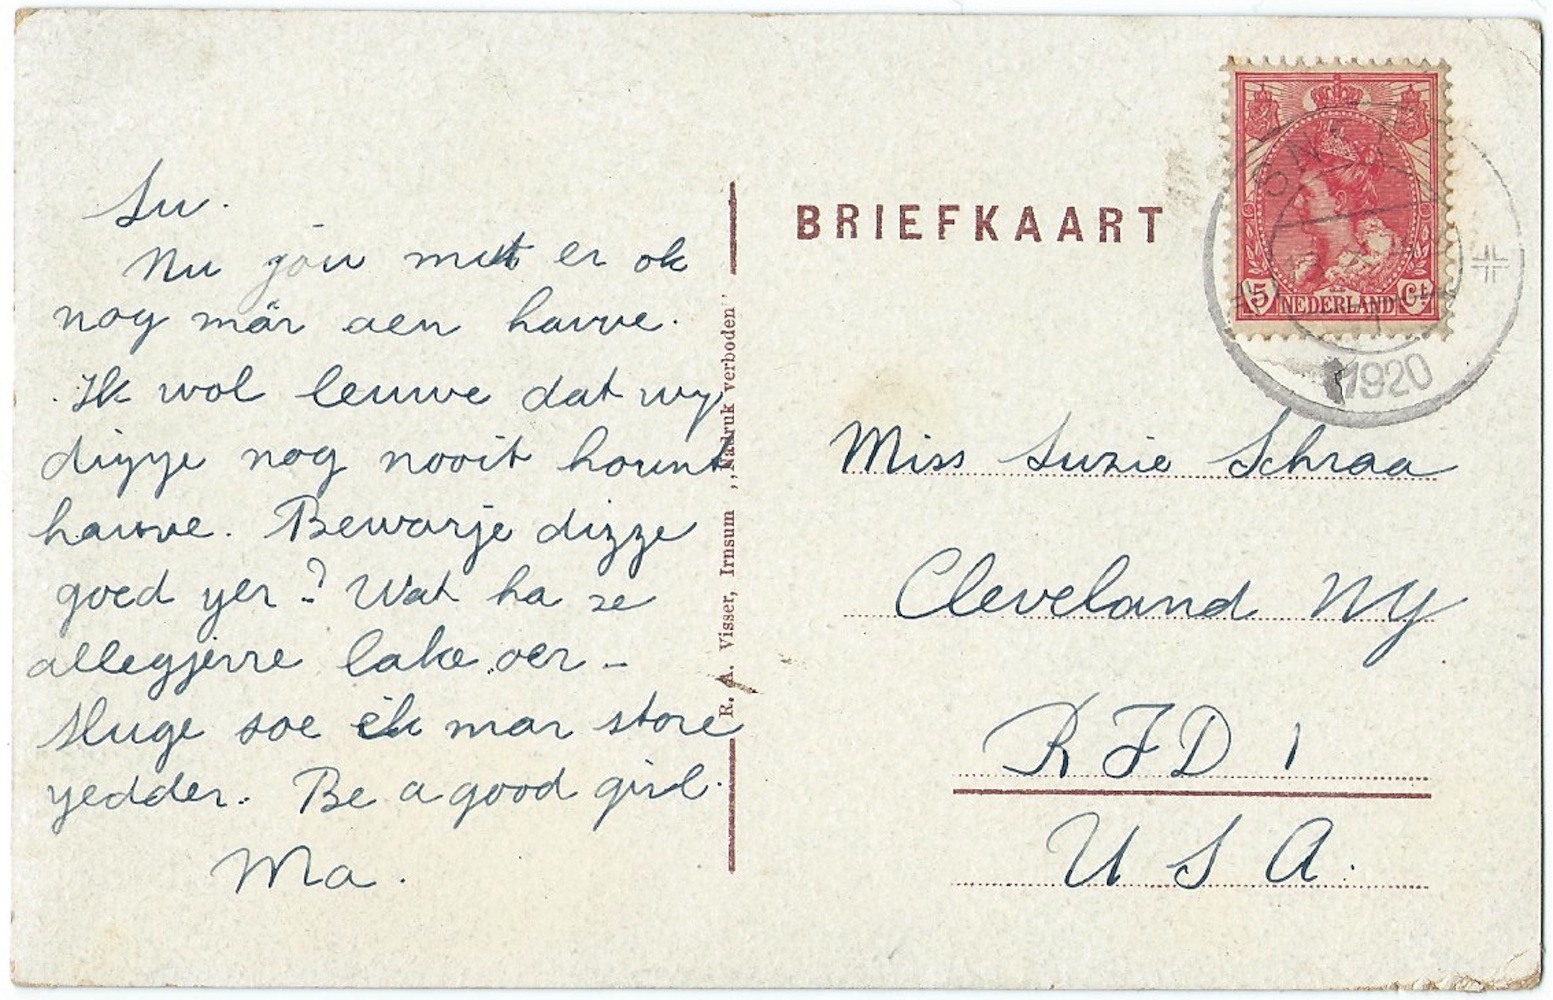 Su.
Nu jou mut er ok
nog mar aen hauve.
Ik wol leuwe dat wy
dizze nog nooit hount
hauve. Bewarje dizze
goed yer? Wat ha ze
allegjerre lake oer -
sluge soe ik mar store
yedder. Be a good girl.
Ma.
R. A. Visser, Irnsum ,,Nadruk verboden"
BRIEFKAART
5 NEDERLAND Ct
1920
Miss Suzie Schraa
Cleveland NY
RFD 1
USA.